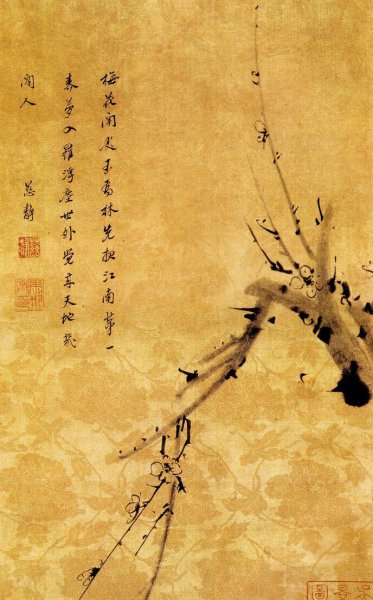 梅花開處玉為林先報江南第一
春夢入羅浮塵世外覺來天地幾
閒人
慈靜